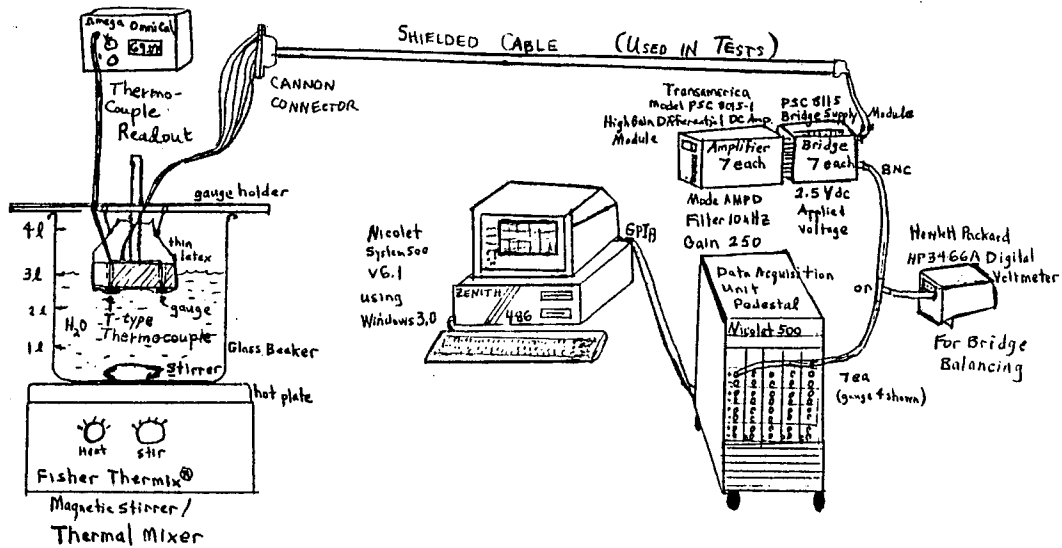 Omega OmniCal
Thermo-
Couple
Readout
SHIELDED CABLE (USED IN TESTS)
CANNON
CONNECTOR
Transamerica
Model PSC 8015-1
High Gain Differential DC Amp.
Module
PSC 8115
Bridge Supply
Modules
Amplifier
7 each
Bridge
7 each
BNC
Mode AMPD
Filter 10 kHz
Gain 250
2.5 Vdc
Applied
Voltage
gauge holder
4l
3l
2l
1l
thin
latex
gauge
T-type
Thermocouple
H2O
Glass Beaker
stirrer
hot plate
Heat
Stir
Fisher Thermix®
Magnetic Stirrer/
Thermal Mixer
Nicolet
System 500
V6.1
using
Windows 3.0
ZENITH
486
Data Acquisition
Unit
Pedestal
Nicolet 500
or
Hewlett Packard
HP3466A Digital
Voltmeter
For Bridge
Balancing
7ea
(gauge 4 shown)